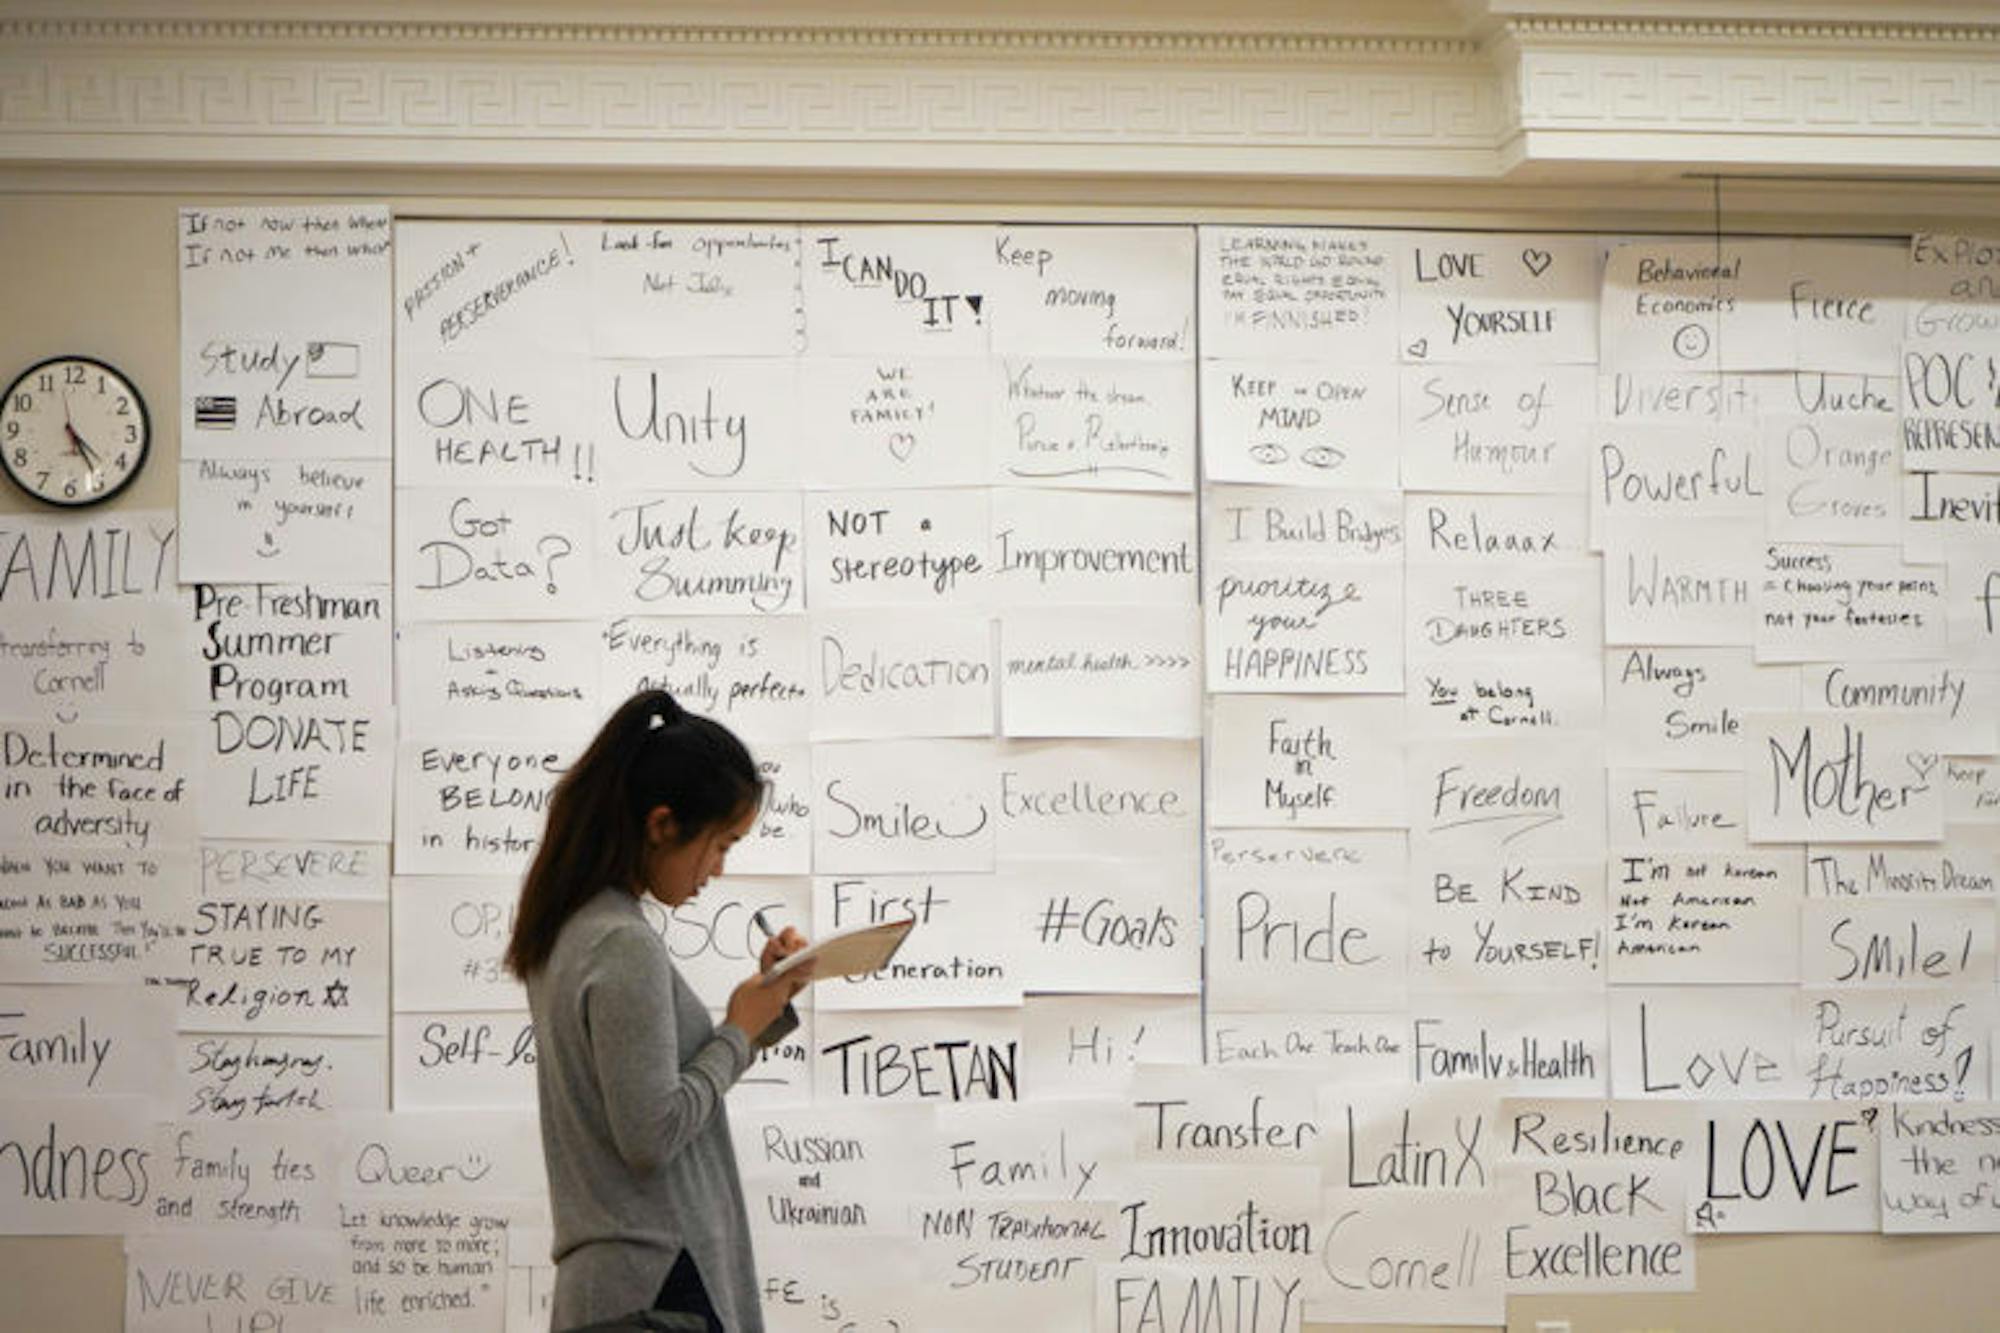 If not now then when
If not me then who
Study
Abroad
Always believe
in yourself
FAMILY
transferring to
Cornell
Determined
in the face of
adversity
WHEN YOU WANT TO
AS BAD AS YOU
SUCCESSFUL"
Family
ndness
Pre-Freshman
Summer
Program
DONATE
LIFE
PERSEVERE
STAYING
TRUE TO MY
Religion
Stay hungry.
Stay foolish
family ties
and strength
NEVER GIVE
UP!
Queer
Let knowledge grow
from more to more;
and so be human
life enriched."
PASSION +
PERSERVERANCE!
ONE
HEALTH!!
Got
Data?
Listening
Asking Questions
Everyone
BELONG
in histor
OP,
#3
Self-lo
Look for opportunities,
Not Jobs
Unity
Just keep
Swimming
"Everything is
actually perfect
you
who
be
OSCC
tion
I CAN DO
IT!
WE
ARE
FAMILY!
NOT a
stereotype
Dedication
Smile
First
Generation
TIBETAN
Keep
moving
forward!
Whatever the dream
Improvement
mental health >>>>
Excellence
#Goals
Hi!
Russian
and
Ukrainian
FE is
Family
NON TRADITIONAL
STUDENT
Transfer
Innovation
FAMILY
LEARNING MAKES
THE WORLD GO ROUND
EQUAL RIGHTS EQUAL
PAY EQUAL OPPORTUNITY
I'M FINNISHED!
KEEP an OPEN
MIND
I Build Bridges
prioritize
your
HAPPINESS
Faith
in
Myself
Perservere
Pride
Each One Teach One
LOVE
YOURSELF
Sense of
Humour
Relaaax
THREE
DAUGHTERS
You belong
at Cornell.
Freedom
BE KIND
to YOURSELF!
Family & Health
LatinX
Cornell
Behavioral
Economics
Diversit
Powerful
WARMTH
Always
Smile
Failure
I'm not Korean
Not American
I'm Korean
American
Love
Resilience
Black
Excellence
LOVE
Fierce
Uuche
Orange
Groves
Success
= Choosing your pains
not your fantasies
Community
Mother
Keep
The Minority Dream
SMile!
Pursuit of
Happiness!
Kindness
the n
way of
Explo
an
Grow
POC
REPRESEN
Inevit
f
12
1
2
3
4
5
6
7
8
9
10
11